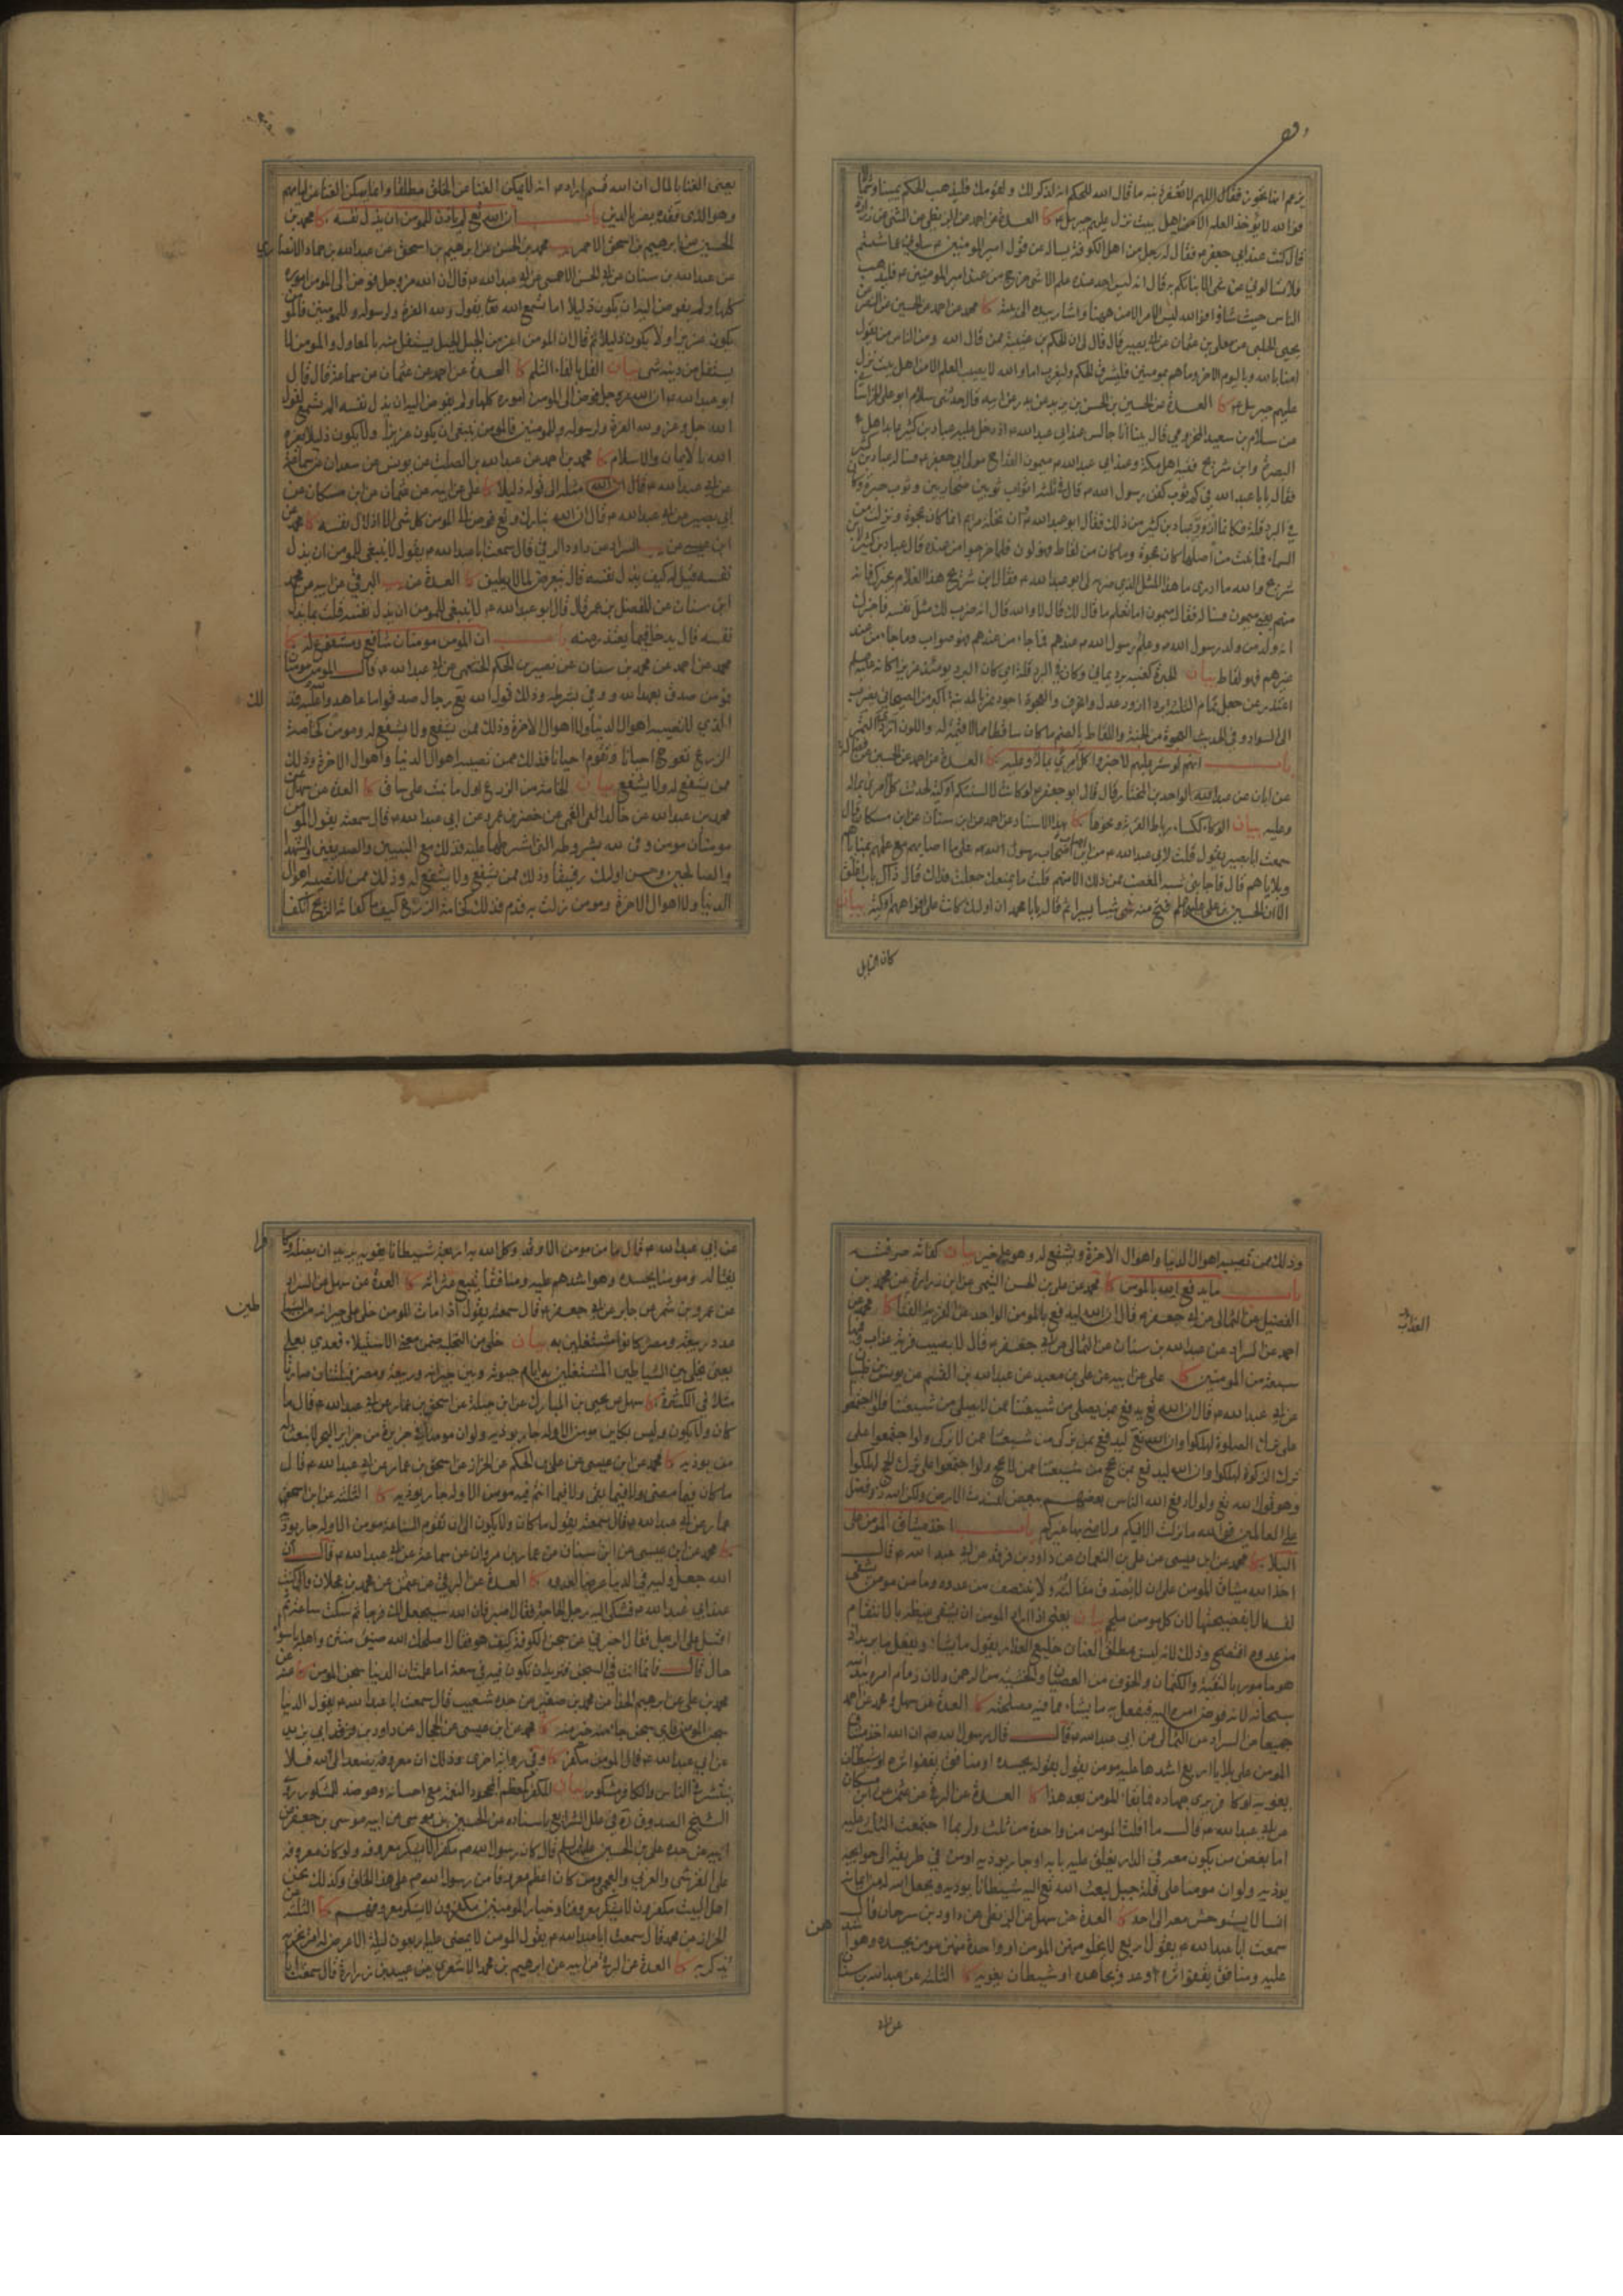 يزعم انها تجوز فقال اللهم لا تغفر ذنبه ما قال الله للحكم انه لذكر لك ولقومك فليذهب الحكم يمينا وشمالا
فوالله لا يؤخذ العلم الا من اهل بيت نزل عليهم جبرئيل كا العدة عن احمد عن البزنطي عن المثنى عن زرارة
قال كنت عند ابي جعفر فقال له رجل من اهل الكوفة يساله عن قول امير المومنين سلوني عما شئتم
فلا تسالوني عن شي الا نباتكم به قال انه ليس احد عنده علم الا شي خرج من عند امير المومنين فليذهب
الناس حيث شاؤا فوالله ليس الامر الا من ههنا واشار بيده الى بيته كا محمد عن احمد عن الحسين عن النضر عن
يحيى الحلبي عن معلى بن عثمان عن ابي بصير قال قال لي ان الحكم بن عتيبة ممن قال الله ومن الناس من يقول
امنا بالله وباليوم الاخر وما هم بمومنين فليشرق الحكم وليغرب اما والله لا يصيب العلم الا من اهل بيت نزل
عليهم جبرئيل كا العدة عن الحسين بن الحسن بن يزيد عن بدر عن ابيه قال حدثني سلام ابو علي الخراساني
عن سلام بن سعيد المخزومي قال بينا انا جالس عند ابي عبدالله اذ دخل عليه عباد بن كثير عابد اهل
البصرة وابن شريح فقيه اهل مكة وعند ابي عبدالله ميمون القداح مولى ابي جعفر فساله عباد بن كثير
فقال يا با عبدالله في كم ثوب كفن رسول الله قال في ثلثة اثواب ثوبين صحاريين وثوب حبرة وكان
في البرد قلة فكانما ازور عباد بن كثير من ذلك فقال ابو عبدالله ان نخلة مريم انما كانت عجوة ونزلت من
السماء فما نبت من اصلها كان عجوة وما كان من لقاط فهو لون فلما خرجوا من عنده قال عباد بن كثير لابن
شريح والله ما ادري ما هذا المثل الذي ضربه لي ابو عبدالله فقال ابن شريح هذا الغلام يخبرك فانه
منهم يعني ميمون فساله فقال ميمون اما تعلم ما قال لك قال لا والله قال انه ضرب لك مثل نفسه فاخبرك
انه ولد من ولد رسول الله وعلم رسول الله عندهم فما جاء من عندهم فهو صواب وما جاء من عند
غيرهم فهو لقاط بيان
الى السواد وفي الحديث العجوة من الجنة واللقاط بالضم ما كان ساقطا مما لا قيمة له واللون
باب انهم لو ستر عليهم لاخبروا كل امرئ بماله وعليه كا العدة عن احمد عن الحسين عن فضالة
عن ابان عن عبد الواحد بن المختار قال قال ابو جعفر لو كانت لالسنتكم اوكية لحدثت كل امرئ بماله
وعليه بيان الوكاء ككساء رباط القربة ونحوها كا بهذا الاسناد عن احمد عن ابن سنان عن ابن مسكان قال
سمعت ابا بصير يقول قلت لابي عبدالله من اين اصاب اصحاب رسول الله علي ما اصابهم مع علمهم بمناياهم
وبلاياهم قال فاجابني شبه المغضب ممن ذلك الا منهم قلت ما يمنعك جعلت فداك قال ذاك باب اغلق
الا ان الحسين بن علي فتح منه شي يسيرا ثم قال يا با محمد ان اولئك كانت على افواههم اوكية بيان
كان القابل
يعني الغنا بالمال ان الله
وهو الذي فقده يضر بالدين باب ان الله تع لم ياذن للمومن ان يذل نفسه كا محمد بن
الحسين عن ابراهيم بن اسحق الاحمر محمد بن الحسن عن ابراهيم بن اسحق عن عبدالله بن حماد الانصاري
عن عبدالله بن سنان عن ابي الحسن الاحمسي عن ابي عبدالله قال ان الله عز وجل فوض الى المومن اموره
كلها ولم يفوض اليه ان يكون ذليلا اما تسمع الله تع يقول ولله العزة ولرسوله وللمومنين فالمومن
يكون عزيزا ولا يكون ذليلا ثم قال ان المومن اعز من الجبل الجبل يستفل منه بالمعاول والمومن لا
يستفل من دينه شي بيان الفل بالفاء الثلم كا العدة عن احمد عن عثمان عن سماعة قال قال
ابو عبدالله ان الله عز وجل فوض الى المومن اموره كلها ولم يفوض اليه ان يذل نفسه الم تسمع لقول
الله جل وعز ولله العزة ولرسوله وللمومنين فالمومن ينبغي ان يكون عزيزا ولا يكون ذليلا يعزه
الله بالايمان والاسلام كا محمد بن احمد عن عبدالله بن الصلت عن يونس عن سعدان عن سماعة
عن ابي عبدالله قال ان الله مثله الى قوله ذليلا كا علي عن ابيه عن عثمان عن ابن مسكان عن
ابي بصير عن ابي عبدالله قال ان الله تبارك وتع فوض الى المومن كل شي الا اذلال نفسه كا محمد عن
ابن عيسى عن السراد عن داود الرقي قال سمعت ابا عبدالله يقول لا ينبغي للمومن ان يذل
نفسه قيل له كيف يذل نفسه قال يتعرض لما لا يطيق كا العدة عن البرقي عن ابيه عن محمد
ابن سنان عن المفضل بن عمر قال قال ابو عبدالله لا ينبغي للمومن ان يذل نفسه قلت بما يذل
نفسه قال يدخل فيما يعتذر منه باب ان المومن مومنان شافع ومشفوع له كا
محمد عن احمد عن محمد بن سنان عن نصير بن الحكم الخثعمي عن ابي عبدالله قال المومن مومنان
فمومن صدق بعهد الله ووفى بشرطه وذلك قول الله تع رجال صدقوا ما عاهدوا الله عليه فذلك
الذي لا تصيبه اهوال الدنيا ولا اهوال الاخرة وذلك ممن يشفع ولا يشفع له ومومن كخامة
الزرع تعوج احيانا وتقوم احيانا فذلك ممن تصيبه اهوال الدنيا واهوال الاخرة وذلك
ممن يشفع له ولا يشفع بيان الخامة من الزرع اول ما نبت على ساق كا العدة عن سهل عن
محمد بن عبدالله عن خالد العمي عن خضر بن عمرو عن ابي عبدالله قال سمعته يقول المومن
مومنان مومن وفى لله بشروطه التي اشترطها عليه فذلك مع النبيين والصديقين والشهداء
والصالحين وحسن اولئك رفيقا وذلك ممن يشفع ولا يشفع له وذلك ممن لا تصيبه اهوال
الدنيا ولا اهوال الاخرة ومومن زلت به قدم فذلك كخامة الزرع كيف ما كفاته الريح انكفا
وذلك ممن تصيبه اهوال الدنيا واهوال الاخرة ويشفع له وهو على خير بيان كفاته صرفته
باب ما يدفع الله بالمومن كا محمد عن علي بن الحسن التيمي عن ابن زرارة عن محمد بن
الفضيل عن الثمالي عن ابي جعفر قال ان الله ليدفع بالمومن الواحد عن القرية الفنا كا محمد عن
احمد عن السراد عن عبدالله بن سنان عن الثمالي عن ابي جعفر قال لا يصيب قرية عذاب وفيها
سبعة من المومنين كا علي عن ابيه عن علي بن معبد عن عبدالله بن القسم عن يونس بن ظبيان
عن ابي عبدالله قال ان الله تع يدفع بمن يصلي من شيعتنا عمن لا يصلي من شيعتنا ولو اجتمعوا
على ترك الصلوة لهلكوا وان الله تع ليدفع بمن يزكي من شيعتنا عمن لا يزكي ولو اجتمعوا على
ترك الزكوة لهلكوا وان الله ليدفع بمن يحج من شيعتنا عمن لا يحج ولو اجتمعوا على ترك الحج لهلكوا
وهو قول الله تع ولولا دفع الله الناس بعضهم ببعض لفسدت الارض ولكن الله ذو فضل
على العالمين فوالله ما نزلت الا فيكم ولا عنى بها غيركم باب اخذ ميثاق المومن على
البلاء كا محمد عن ابن عيسى عن علي بن النعمان عن داود بن فرقد عن ابي عبدالله قال
اخذ الله ميثاق المومن على ان لا تصدق مقالته ولا ينتصف من عدوه وما من مومن يشفي
نفسه الا بفضيحتها لان كل مومن ملجم بيان يعني اذا اراد المومن ان يشفي غيظه بالانتقام
من عدوه افتضح وذلك لانه ليس بمطلق العنان خليع العذار يقول ما يشاء ويفعل ما يريد اذ
هو مامور بالتقية والكتمان والخوف من العصيان والخشية من الرحمن ولان زمام امره بيد الله
سبحانه لانه فوض امره اليه فيفعل به ما يشاء مما فيه مصلحته كا العدة عن سهل ومحمد عن احمد
جميعا عن السراد عن الثمالي عن ابي عبدالله قال قال رسول الله ان الله اخذ ميثاق
المومن على بلايا اربع اشدها عليه مومن يقول بقوله يحسده او منافق يقفو اثره او شيطان
يغويه او كافر يرى جهاده فما بقاء المومن بعد هذا كا العدة عن البرقي عن عثمان عن ابن مسكان
عن ابي عبدالله قال ما افلت المومن من واحدة من ثلث ولربما اجتمعت الثلث عليه
اما بغض من يكون معه في الدار يغلق عليه بابه او جار يوذيه او من في طريقه الى حوايجه
يوذيه ولو ان مومنا على قلة جبل لبعث الله تع اليه شيطانا يوذيه ويجعل الله له من ايمانه
انسا لا يستوحش معه الى احد كا العدة عن سهل عن البزنطي عن داود بن سرحان قال
سمعت ابا عبدالله يقول اربع لا يخلو منهن المومن او واحدة منهن مومن يحسده وهو اشدهن
عليه ومنافق يقفو اثره او عدو يجاهده او شيطان يغويه كا الثلثة عن عبدالله بن سنان
العذاب
عن ابي عبدالله قال ما من مومن الا وقد وكل الله به اربعة شيطانا يغويه يريد ان يضله وكافرا
يقاتله ومومنا يحسده وهو اشدهم عليه ومنافقا يتبع عثراته كا العدة عن سهل عن السراد
عن عمرو بن شمر عن جابر عن ابي جعفر قال سمعته يقول اذا مات المومن خلي على جيرانه من الشياطين
عدد ربيعة ومضر كانوا مشتغلين به بيان خلى من التخلية ضمن معنى الاستيلاء فعدي بعلى
يعني يخلى بين الشياطين المشتغلين به ايام حيوته وبين جيرانه وربيعة ومضر قبيلتان صارتا
مثلا في الكثرة كا سهل عن يحيى بن المبارك عن ابن جبلة عن اسحق بن عمار عن ابي عبدالله قال ما
كان ولا يكون وليس بكاين مومن الا وله جار يوذيه ولو ان مومنا في جزيرة من جزاير البحر لابتعث الله
من يوذيه كا محمد عن ابن عيسى عن علي بن الحكم عن الخزاز عن اسحق بن عمار عن ابي عبدالله قال
ما كان فيما مضى ولا فيما بقى ولا فيما انتم فيه مومن الا وله جار يوذيه كا الثلثة عن ابن اسحق
عمار عن ابي عبدالله قال سمعته يقول ما كان ولا يكون الى ان تقوم الساعة مومن الا وله جار يوذيه
كا محمد عن ابن عيسى عن ابن سنان عن عمار بن مروان عن سماعة عن ابي عبدالله قال ان
الله جعل وليه في الدنيا غرضا لعدوه كا العدة عن البرقي عن عثمان عن محمد بن عجلان قال كنت
عند ابي عبدالله فشكى اليه رجل الحاجة فقال اصبر فان الله سيجعل لك فرجا ثم سكت ساعة ثم
اقبل على الرجل فقال اخبرني عن سجن الكوفة كيف هو فقال اصلحك الله ضيق منتن واهله باسوا
حال قال فانما انت في السجن فتريد ان تكون فيه في سعة اما علمت ان الدنيا سجن المومن كا عنه عن
محمد بن علي عن ابرهيم الحذا عن محمد بن صغير عن جده شعيب قال سمعت ابا عبدالله يقول الدنيا
سجن المومن فاي سجن جاء منه خير كا محمد عن ابن عيسى عن الحجال عن داود بن ابي يزيد
عن ابي عبدالله قال المومن مكفر كا وفي رواية اخرى وذلك ان معروفه يصعد الى الله فلا
ينتشر في الناس والكافر مشكور بيان المكفر كمعظم المجحود النعمة مع احسانه وهو ضد للمشكور روى
الشيخ الصدوق ره في علل الشرايع باسناده عن الحسين بن موسى عن ابيه موسى بن جعفر عن
ابيه عن جده علي بن الحسين قال كان رسول الله مكفرا لا يشكر معروفه ولو كان معروفه
على القرشي والعربي والعجمي ومن كان اعظم معروفا من رسول الله على هذا الخلق وكذلك نحن
اهل البيت مكفرون لا يشكر معروفنا وخيار المومنين مكفرون لا يشكر معروفهم كا الثلثة عن
الخزاز عن محمد قال سمعت ابا عبدالله يقول المومن لا يمضي عليه اربعون ليلة الا عرض له امر يحزنه
يذكر به كا العدة عن البرقي عن ابيه عن ابرهيم بن محمد الاشعري عن عبيد بن زرارة قال سمعت ابا